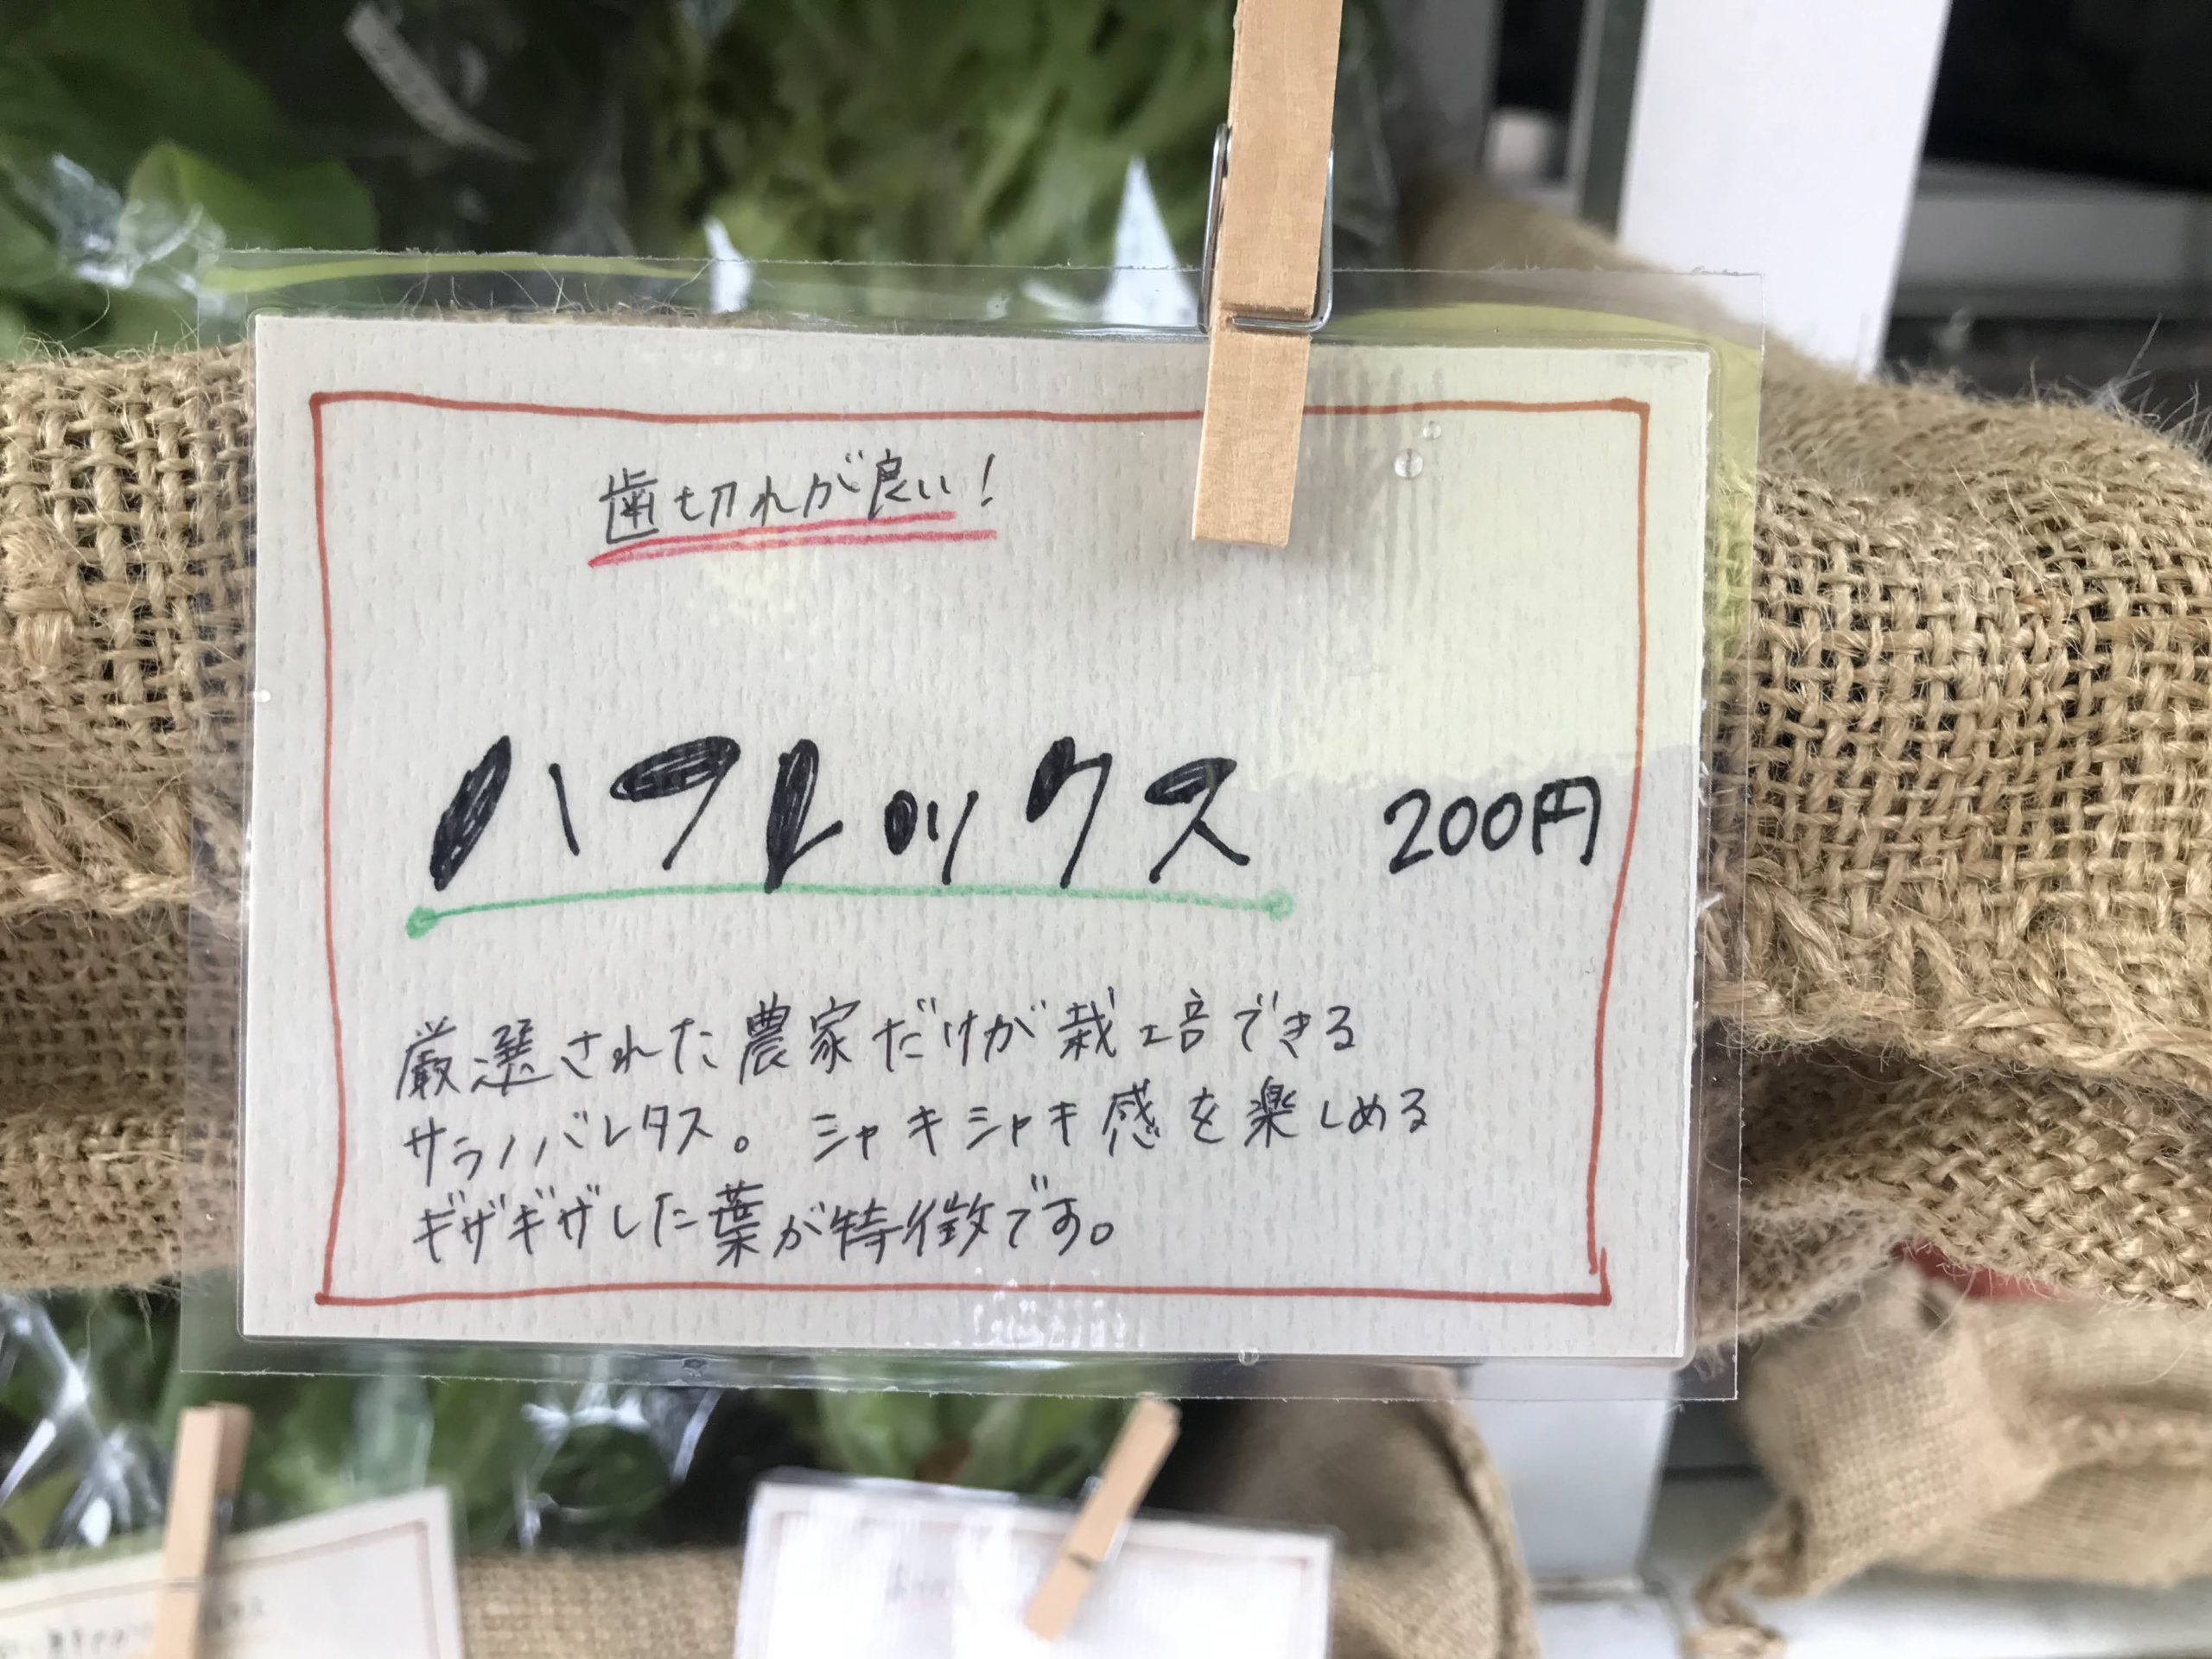 歯切れが良い!
ハフレックス 200円
厳選された農家だけが栽培できる
サラノバレタス。シャキシャキ感を楽しめる
ギザギザした葉が特徴です。